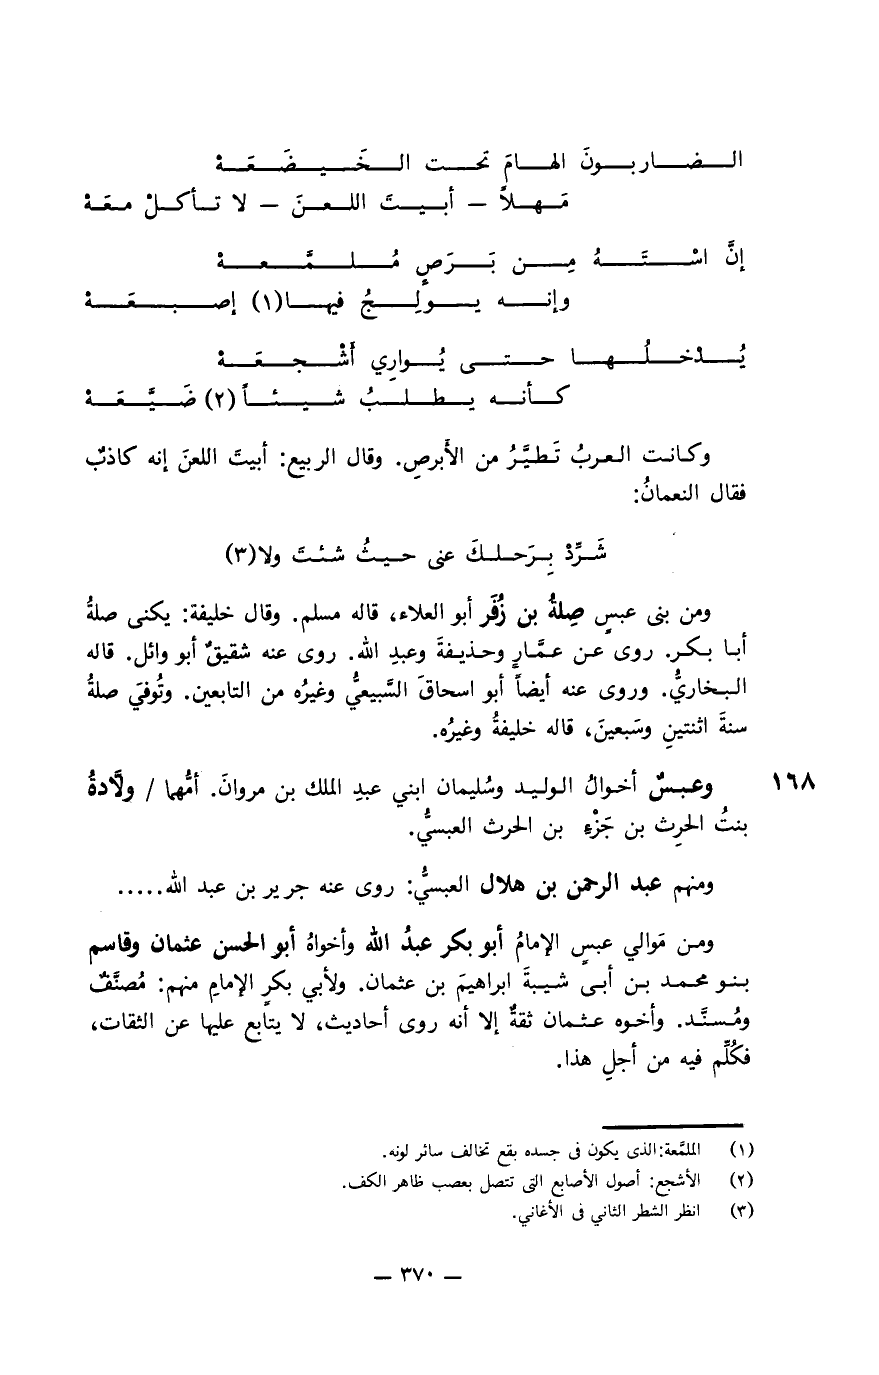 الضاربونَ الهامَ تحت الخَيضَعَهْ
مَهلاً – أبيتَ اللعنَ – لا تأكلْ معَهْ
إنَّ اسْتَهُ مِن بَرَصٍ مُلمَّعهْ
وإنه يولِجُ فيها(١) إصبعَهْ
يُدْخلُها حتى يُوارِي أَشْجعَهْ
كأنه يطلبُ شيئاً(٢) ضَيَّعَهْ
وكانت العربُ تَطيَّرُ من الأَبرصِ. وقال الربيع: أبيتَ اللعنَ إنه كاذبٌ
فقال النعمانُ:
شَرِّدْ بِرَحلكَ عنى حيثُ شئتَ ولا(٣)
ومن بنى عبسٍ صِلةُ بن زُفَر أبو العلاء، قاله مسلم. وقال خليفة: يكنى صلةُ
أبا بكر. روى عن عمَّارٍ وحذيفةَ وعبدِ الله. روى عنه شقيقٌ أبو وائل. قاله
البخاريُّ. وروى عنه أيضاً أبو اسحاقَ السَّبيعيُّ وغيرُه من التابعين. وتُوفيَ صلةُ
سنةَ اثنتينِ وسَبعينَ، قاله خليفةُ وغيرُه.
١٦٨ وعبسٌ أخوالُ الوليد وسُليمان ابني عبدِ الملك بن مروانَ. أمُّهما / ولَّادةُ
بنتُ الحرِث بن جَزْءِ بن الحرث العبسيُّ.
ومنهم عبد الرحمن بن هلال العبسيُّ: روى عنه جرير بن عبد الله.....
ومن مَوالي عبسٍ الإمامُ أبو بكر عبدُ الله وأخواهُ أبو الحسن عثمان وقاسم
بنو محمد بن أبى شيبةَ ابراهيمَ بن عثمان. ولأبي بكرٍ الإمامِ منهم: مُصنَّفٌ
ومُسنَّد. وأخوه عثمان ثقةٌ إلا أنه روى أحاديث، لا يتابع عليها عن الثقات،
فكُلِّم فيه من أجلِ هذا.
(١) الملمَّعة:الذى يكون فى جسده بقع تخالف سائر لونه.
(٢) الأشجع: أصول الأصابع التى تتصل بعصب ظاهر الكف.
(٣) انظر الشطر الثاني فى الأغاني.
– ٣٧٠ –